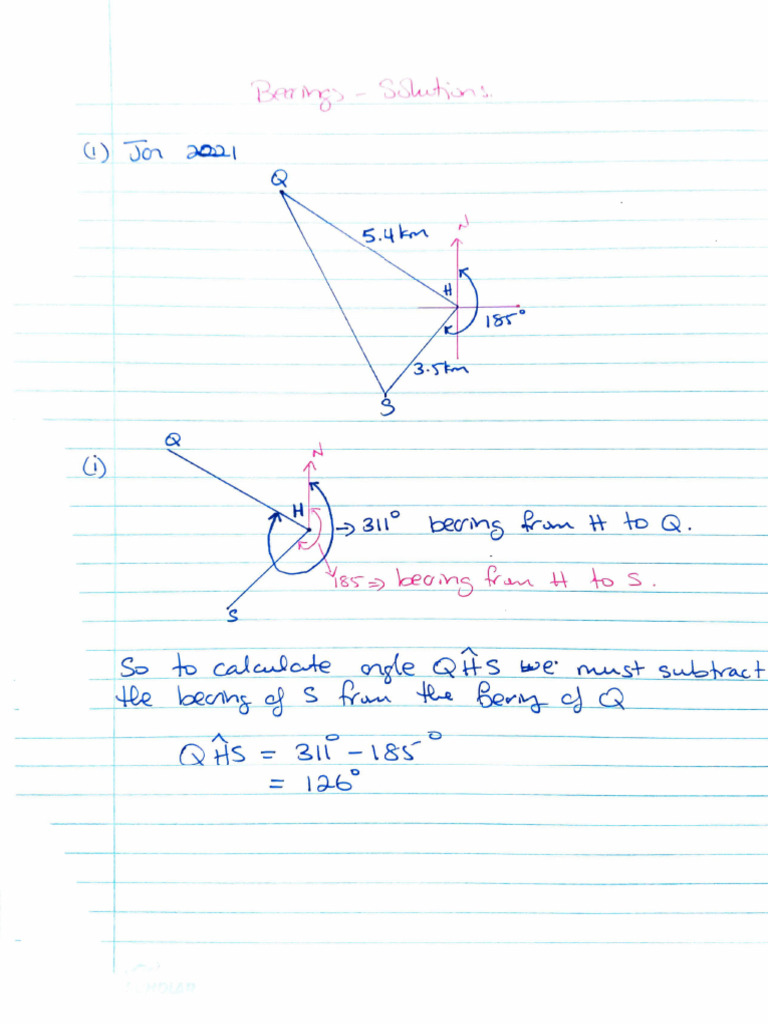 Bearings - Solutions.
(1) Jan 2021
Q
5.4km
N
H
185°
3.5km
S
Q
(i)
N
H
→ 311° bearing from H to Q.
185 => bearing from H to S.
S
So to calculate angle QĤS we must subtract
the bearing of S from the Bering of Q
QĤS = 311° - 185°
= 126°